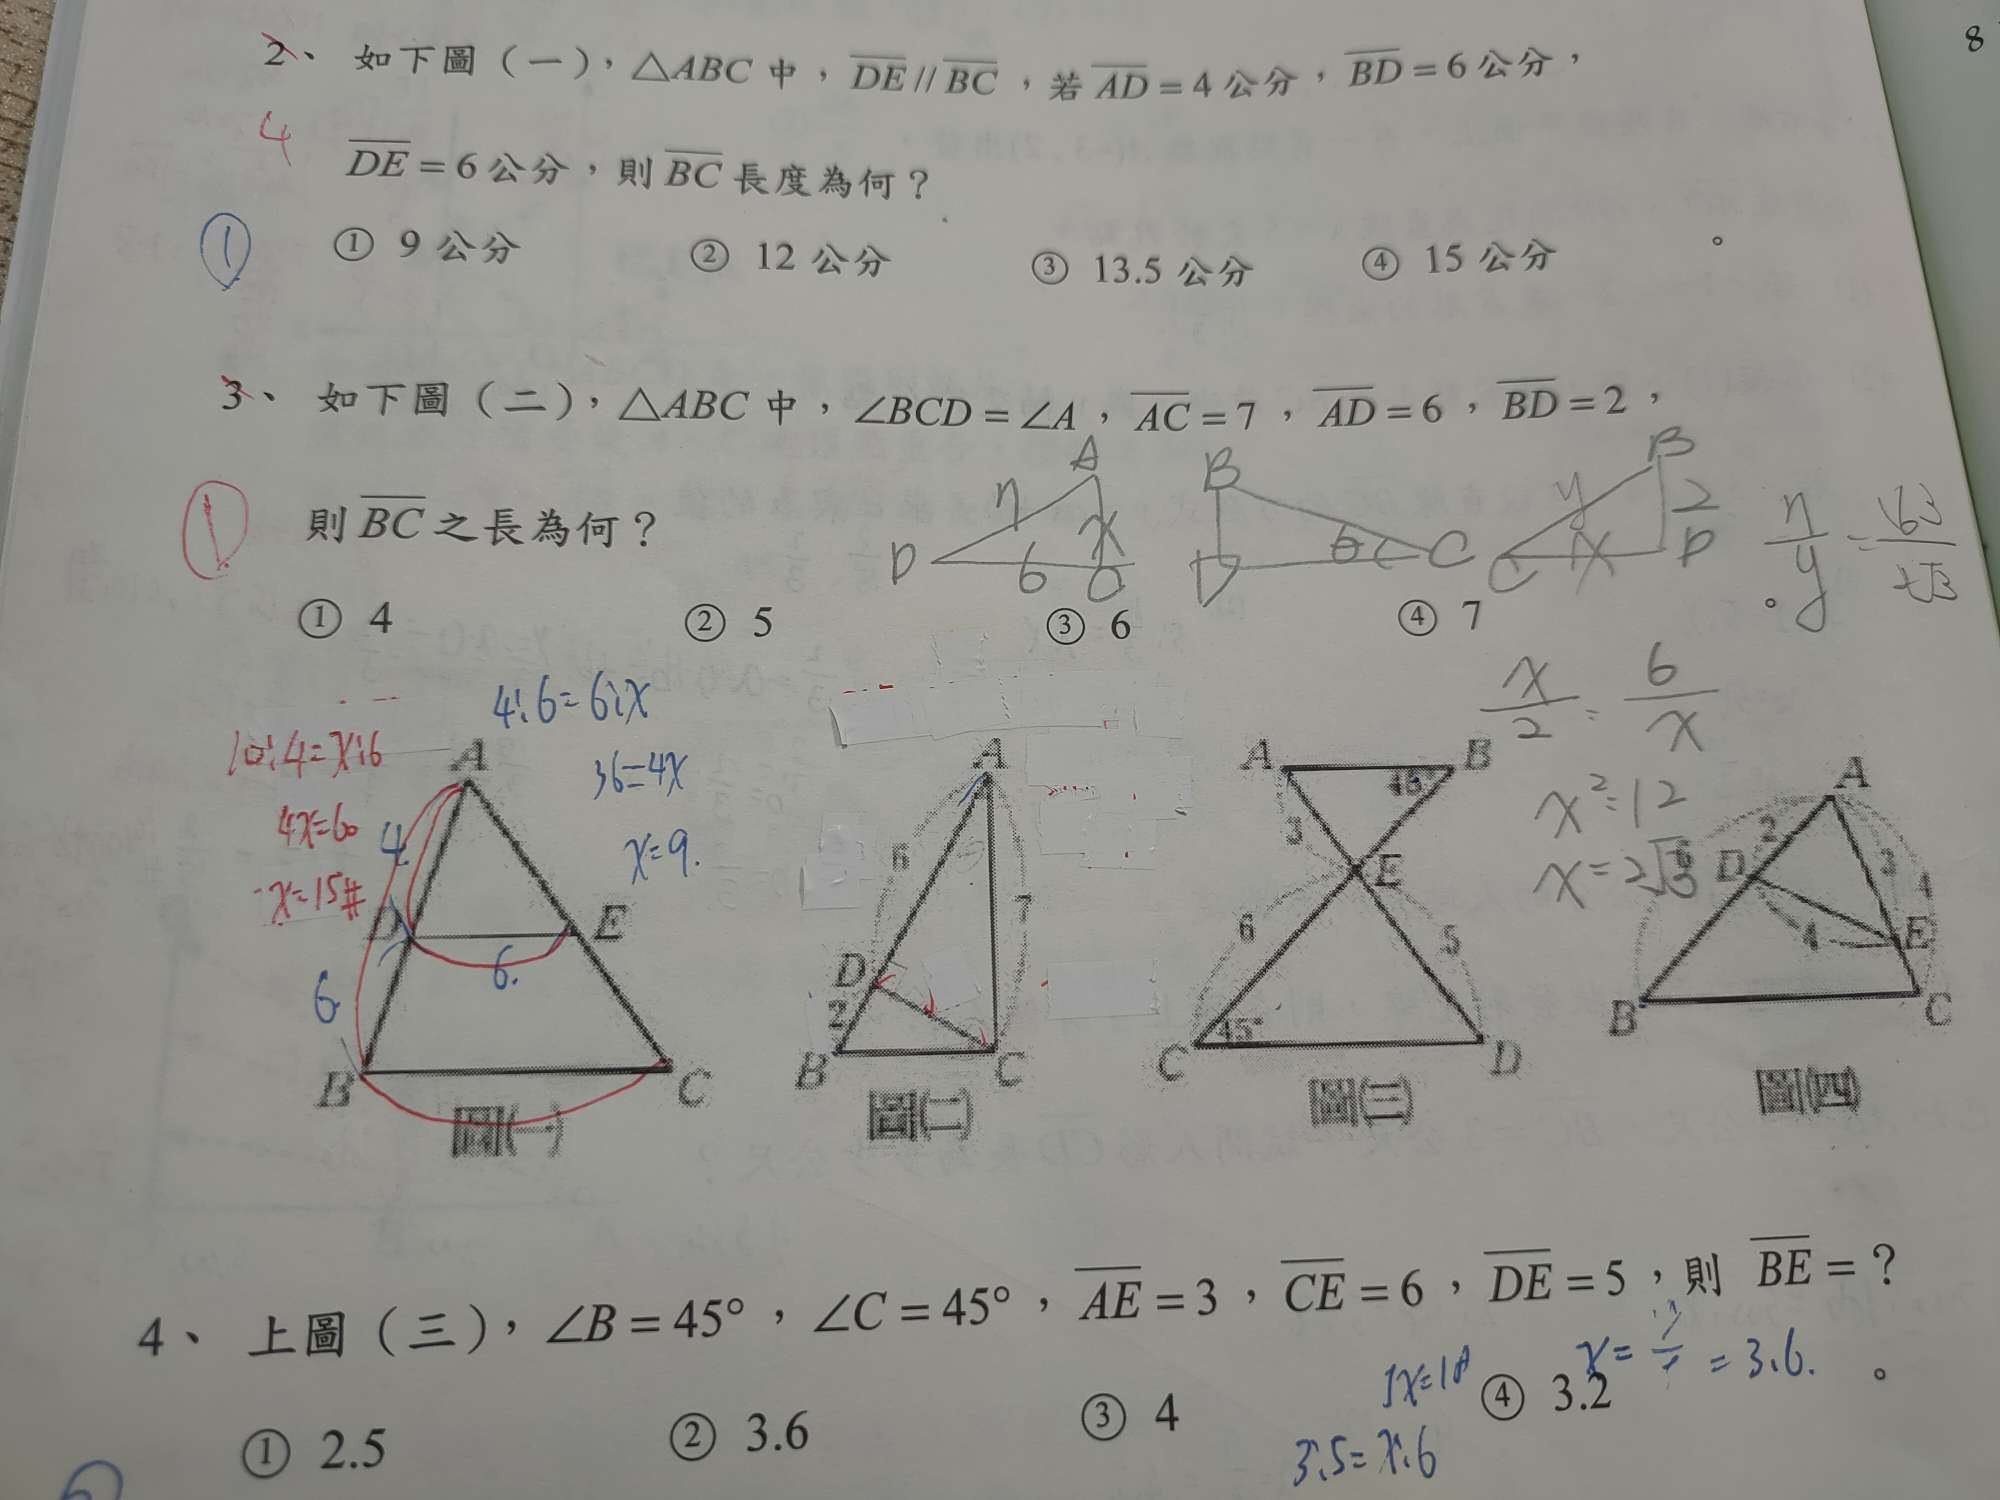 8
2、如下圖（一），△ABC 中，DE // BC，若 AD = 4 公分，BD = 6 公分，
4
DE = 6 公分，則 BC 長度為何？
1
① 9 公分 ② 12 公分 ③ 13.5 公分 ④ 15 公分 。
3、如下圖（二），△ABC 中，∠BCD = ∠A，AC = 7，AD = 6，BD = 2，
1 則 BC 之長為何？
① 4 ② 5 ③ 6 ④ 7 。
x/2 = 6/x
x²=12
4:6=6:x
36=4x
x=9.
10:4=x:6
4x=60
x=15#
A 4 D E 6. 6 B C
圖(一)
A 6 7 D 2 B C
圖(二)
A B 45° 3 E 6 5 45° C D
圖(三)
A 2 D 3 4 E 4 B C
圖(四)
4、上圖（三），∠B = 45°，∠C = 45°，AE = 3，CE = 6，DE = 5，則 BE = ?
① 2.5 ② 3.6 ③ 4 ④ 3.2 。
= 3.6.
3:5=x:6